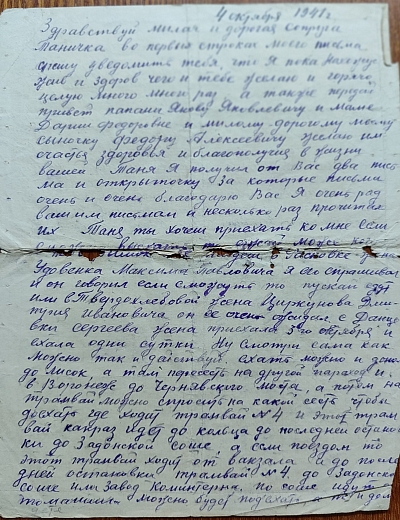 4 октября 1941 г.
Здравствуй милая и дорогая супруга
Таничка во первых строках моего письма
спешу уведомить тебя, что Я пока
жив и здоров чего и тебе желаю и горячо
целую много много раз а также
привет папаши Якову Яковлевичу и маме
Дарии Федоровне и милому дорогому моему
сыночку Алексеевичу желаю им
счастья здоровья и благополучия в жизни
вашей Таня Я получил от Вас два пись
ма и открыточку за которые письма
очень и очень благодарю Вас Я очень рад
вашим письмам и несколько раз прочитал
их Таня ты хочеш приехать ко мне если
может
жена
Удовенка Максима Павловича Я его спрашивал
и он говорил если смогут то пускай едут
или в Твердохлебовой жена Циркунова Дми-
трия Ивановича он ее очень ожидал с Данце
вки Сергеева жена приехала 3го октября и
ехала одни сутки Ну смотри сама как
можно так и действуй ехать можно и
до Лисок, а там пересесть на другой параход и
в Воронеже до Чернявского моста, а потом на
трамвай можно спросить на какой сесть чтобы
доехать где ходит трамвай №4 и этот трам
вай как раз идет до кольца до последней останов
ки до Задонской соше, а если поездом то
этот трамвай ходит от вакзала и до после
дней остановки трамвай №4 до Задонской
соше или завод Коминтерна, по соше идут
машины можно будет подъехать а